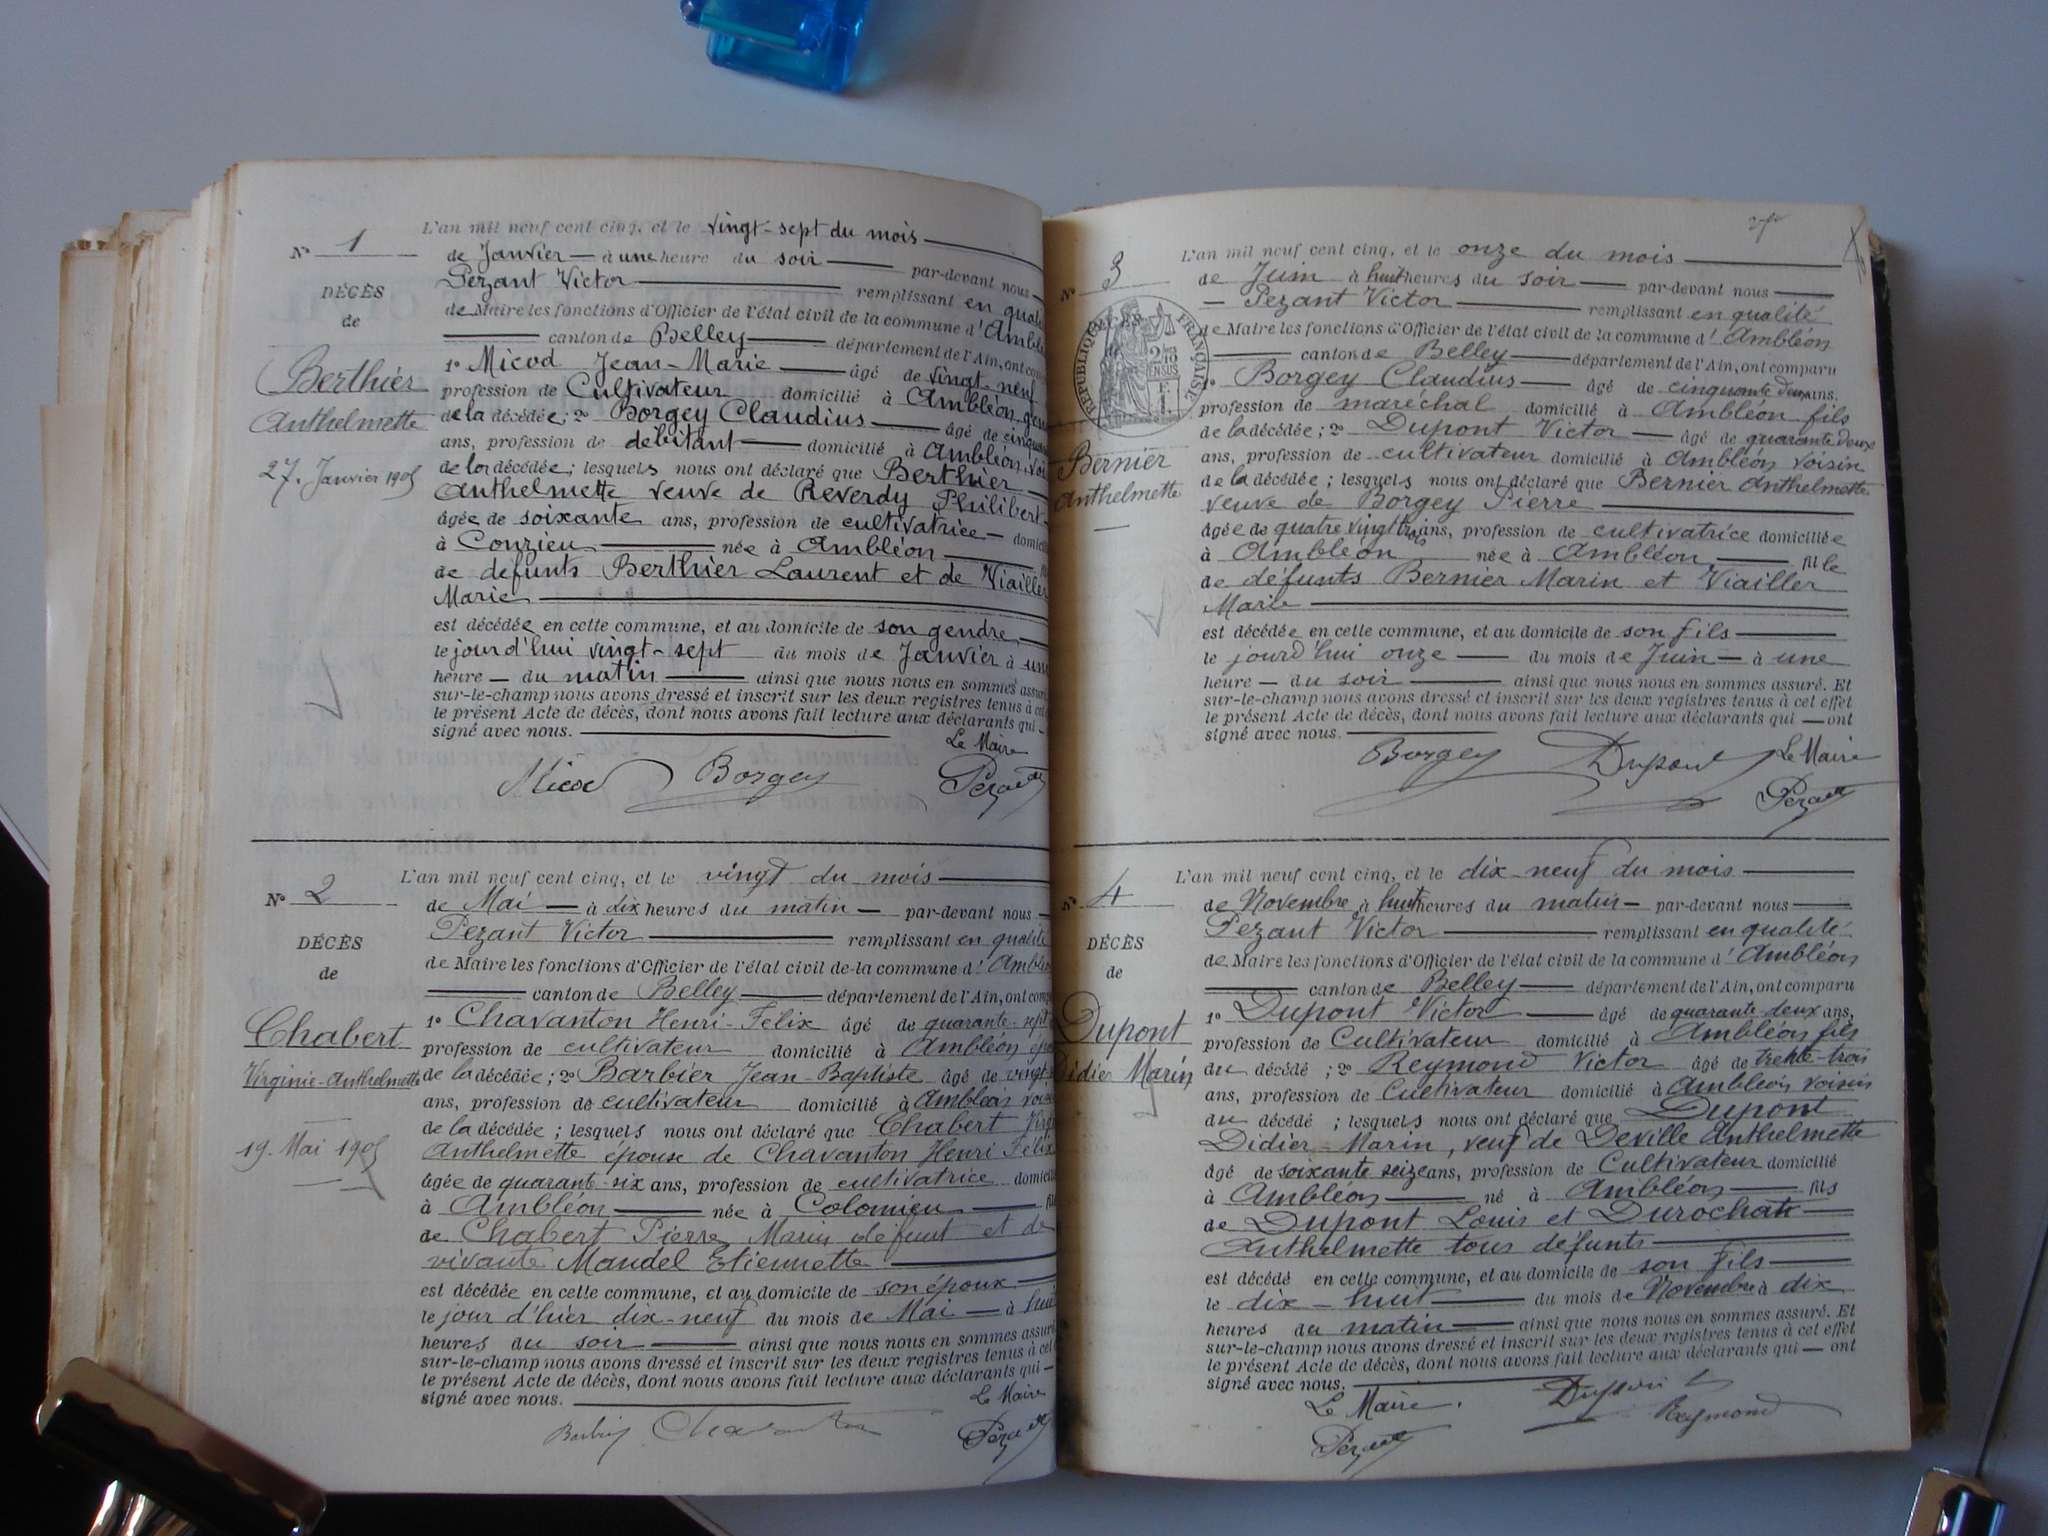 N° 1
DÉCÈS
de
Berthier
Anthelmette
27. Janvier 1905
L'an mil neuf cent cinq, et le vingt-sept du mois
de Janvier — à une heure du soir — par-devant nous
Pezant Victor — remplissant en qualité
de Maire les fonctions d'Officier de l'état civil de la commune d'Ambléon
canton de Belley — département de l'Ain, ont comparu
1° Micod Jean-Marie — âgé de vingt-neuf
profession de Cultivateur domicilié à Ambléon, gendre
de la décédée; 2° Borgey Claudius — âgé de cinquante
ans, profession de débitant — domicilié à Ambléon, voisin
de la décédée; lesquels nous ont déclaré que Berthier
Anthelmette veuve de Reverdy Philibert
âgée de soixante ans, profession de cultivatrice — domiciliée
à Conzieu — née à Ambléon
de défunts Berthier Laurent et de Viailler
Marie
est décédée en cette commune, et au domicile de son gendre
le jourd'hui vingt-sept du mois de Janvier à une
heure — du matin — ainsi que nous nous en sommes assuré.
sur-le-champ nous avons dressé et inscrit sur les deux registres tenus à cet
le présent Acte de décès, dont nous avons fait lecture aux déclarants qui —
signé avec nous.
Le Maire
Micod Borgey Pezant
N° 2
DÉCÈS
de
Chabert
Virginie-Anthelmette
19. Mai 1905
L'an mil neuf cent cinq, et le vingt du mois
de Mai — à dix heures du matin — par-devant nous —
Pezant Victor — remplissant en qualité
de Maire les fonctions d'Officier de l'état civil de la commune d'Ambléon
canton de Belley — département de l'Ain, ont comparu
1° Chavanton Henri-Félix âgé de quarante-sept
profession de cultivateur domicilié à Ambléon époux
de la décédée; 2° Barbier Jean-Baptiste âgé de vingt
ans, profession de cultivateur domicilié à Ambléon voisin
de la décédée; lesquels nous ont déclaré que Chabert Virginie
Anthelmette épouse de Chavanton Henri Félix
âgée de quarante-six ans, profession de cultivatrice domiciliée
à Ambléon — née à Colomieu
de Chabert Pierre Marin défunt et de
vivante Mandel Etiennette
est décédée en cette commune, et au domicile de son époux
le jour d'hier dix-neuf du mois de Mai — à huit
heures du soir — ainsi que nous nous en sommes assuré.
sur-le-champ nous avons dressé et inscrit sur les deux registres tenus à cet
le présent Acte de décès, dont nous avons fait lecture aux déclarants qui —
signé avec nous.
Le Maire
Barbier Chavanton Pezant
N° 3
RÉPUBLIQUE FRANÇAISE
Bernier
Anthelmette
L'an mil neuf cent cinq, et le onze du mois
de Juin à huit heures du soir — par-devant nous
— Pezant Victor — remplissant en qualité
de Maire les fonctions d'Officier de l'état civil de la commune d'Ambléon
canton de Belley — département de l'Ain, ont comparu
1° Borgey Claudius — âgé de cinquante deux ans,
profession de maréchal domicilié à Ambléon fils
de la décédée; 2° Dupont Victor — âgé de quarante deux
ans, profession de cultivateur domicilié à Ambléon voisin
de la décédée; lesquels nous ont déclaré que Bernier Anthelmette
veuve de Borgey Pierre
âgée de quatre vingt trois ans, profession de cultivatrice domiciliée
à Ambléon née à Ambléon — fille
de défunts Bernier Marin et Viailler
Marie
est décédée en cette commune, et au domicile de son fils
le jourd'hui onze — du mois de Juin — à une
heure — du soir — ainsi que nous nous en sommes assuré. Et
sur-le-champ nous avons dressé et inscrit sur les deux registres tenus à cet effet
le présent Acte de décès, dont nous avons fait lecture aux déclarants qui — ont
signé avec nous.
Borgey Dupont Le Maire
Pezant
N° 4
DÉCÈS
de
Dupont
Didier Marin
L'an mil neuf cent cinq, et le dix-neuf du mois
de Novembre à huit heures du matin — par-devant nous
Pezant Victor — remplissant en qualité
de Maire les fonctions d'Officier de l'état civil de la commune d'Ambléon
canton de Belley — département de l'Ain, ont comparu
1° Dupont Victor — âgé de quarante-deux ans,
profession de Cultivateur domicilié à Ambléon fils
du décédé; 2° Reymond Victor âgé de trente-trois
ans, profession de Cultivateur domicilié à Ambléon voisin
du décédé; lesquels nous ont déclaré que Dupont
Didier-Marin, veuf de Deville Anthelmette
âgé de soixante seize ans, profession de Cultivateur domicilié
à Ambléon — né à Ambléon — fils
de Dupont Louis et Durochat
Anthelmette tous défunts
est décédé en cette commune, et au domicile de son fils
le dix-huit — du mois de Novembre à dix
heures du matin — ainsi que nous nous en sommes assuré. Et
sur-le-champ nous avons dressé et inscrit sur les deux registres tenus à cet effet
le présent Acte de décès, dont nous avons fait lecture aux déclarants qui — ont
signé avec nous.
Le Maire. Dupont Reymond
Pezant